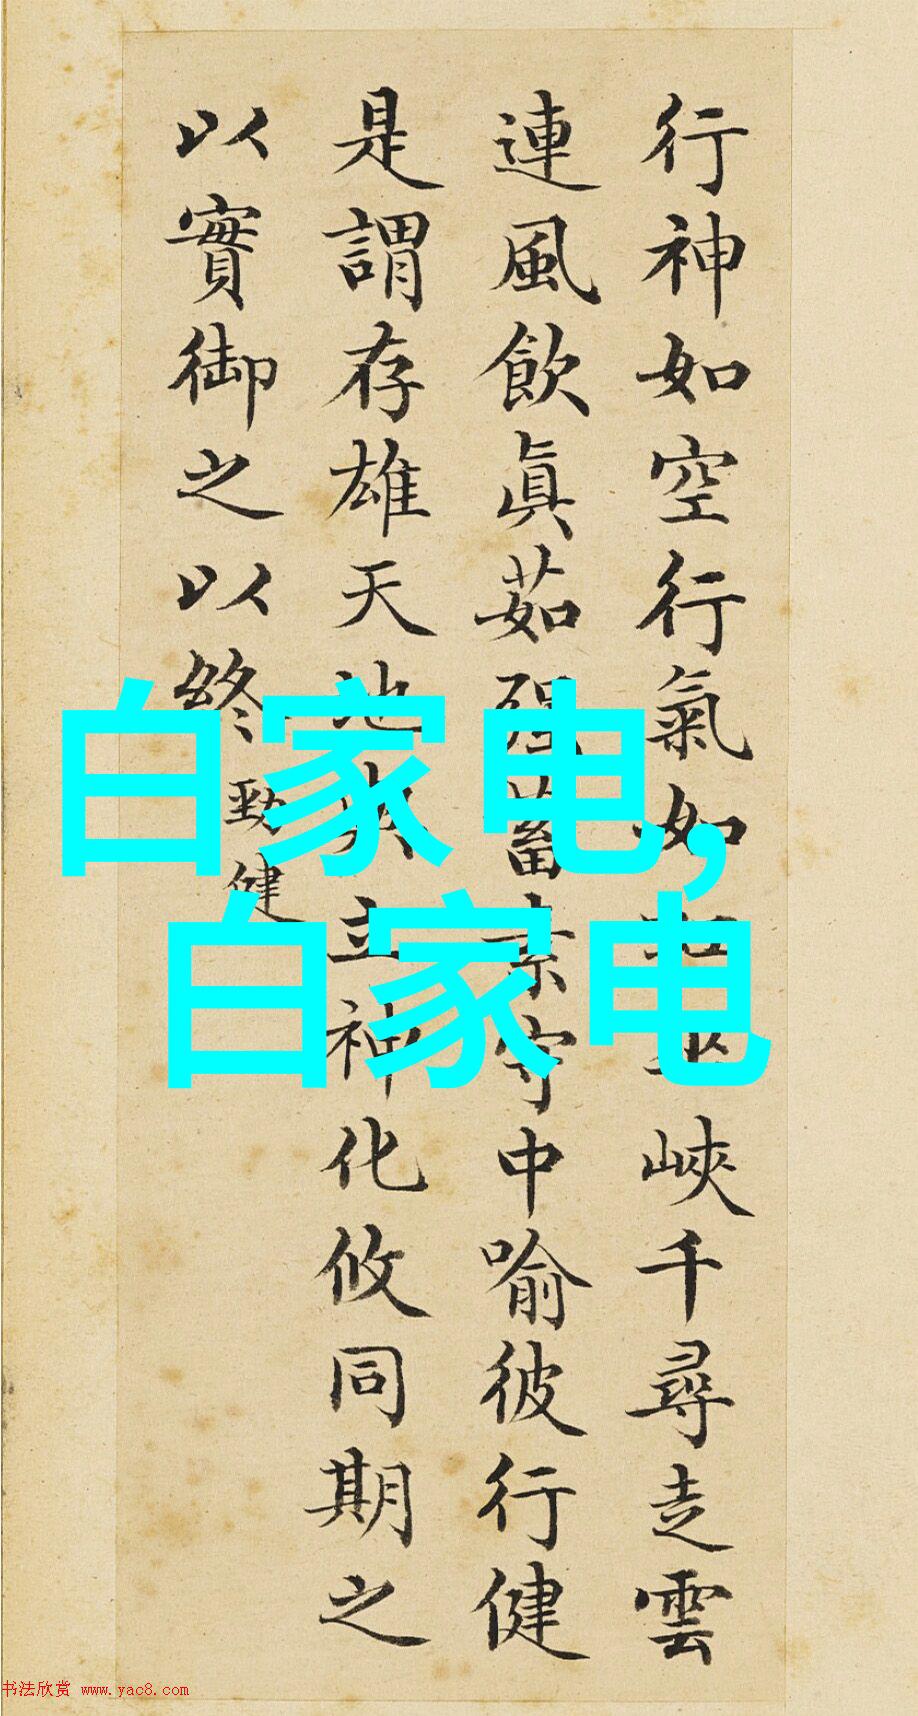 行神如空行氣如峽千尋走雲
連風飲眞茹强蓄素守中喻彼行健
是謂存雄天地與立神化攸同期之
以實御之以終
勁健
白家电,
白家电
书法欣赏 www.yac8.com